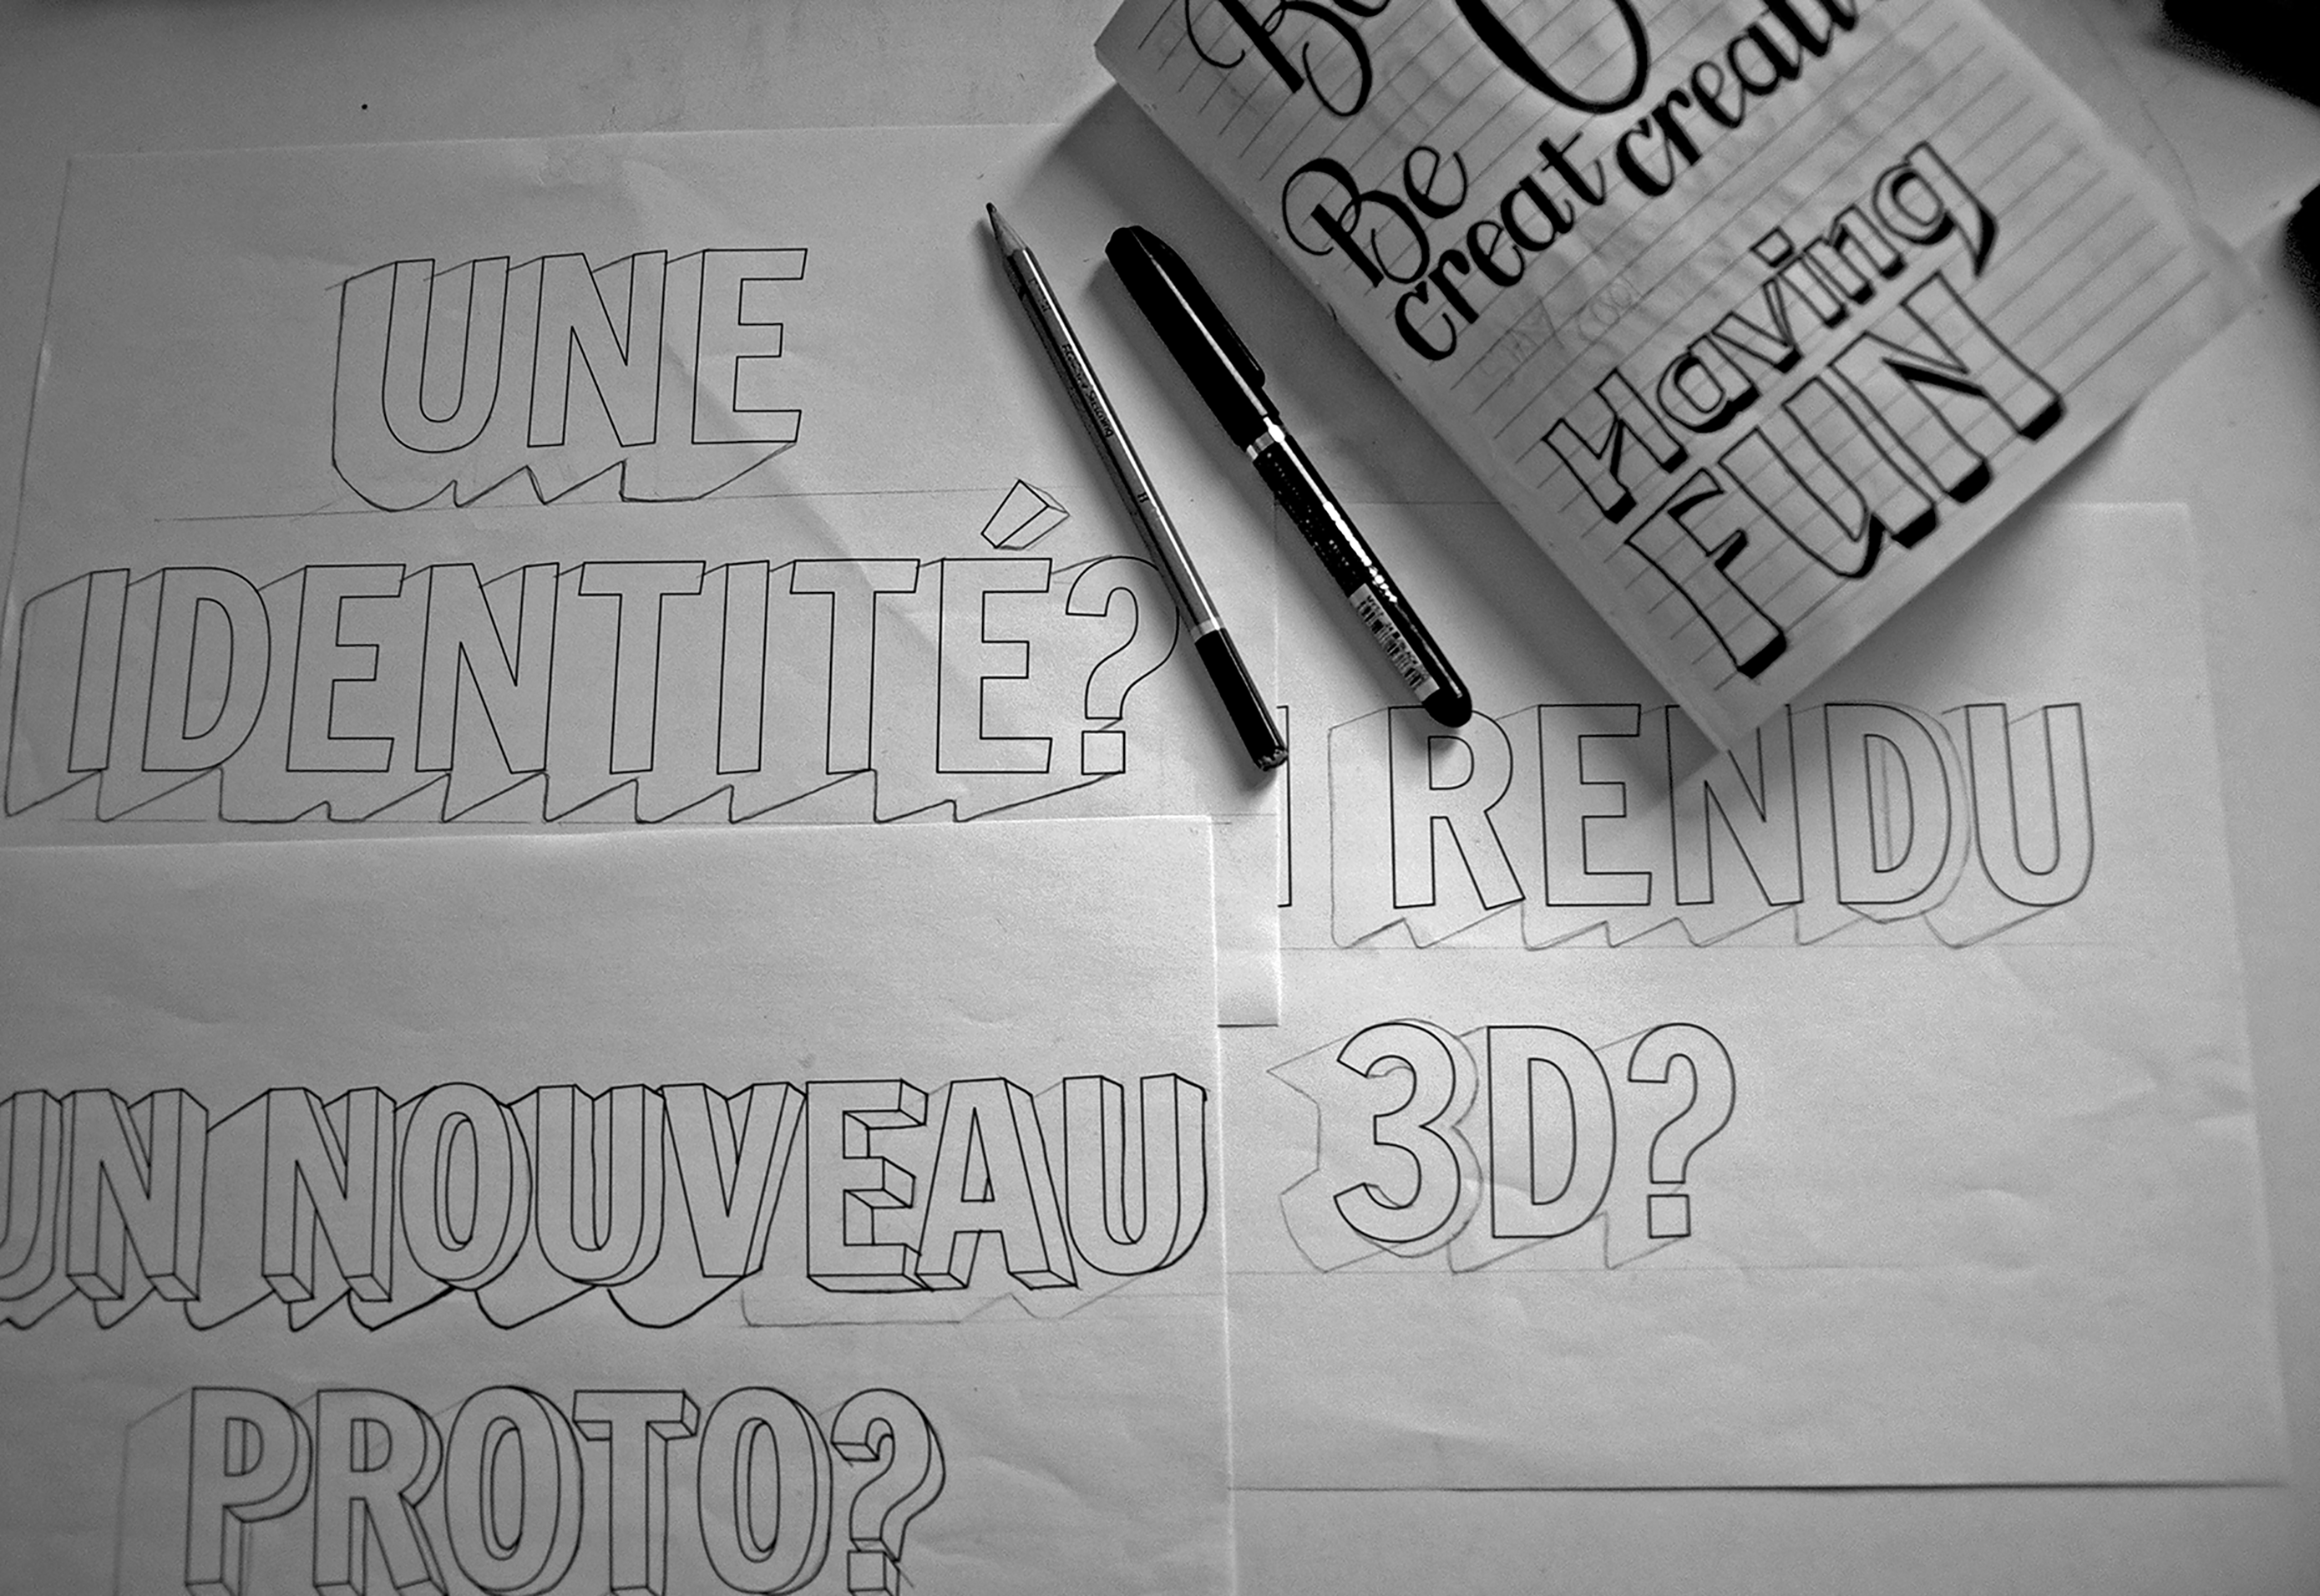 UNE
IDENTITÉ?
UN NOUVEAU
PROTO?
RENDU
3D?
Be
Be
creat creati
Having
FUN